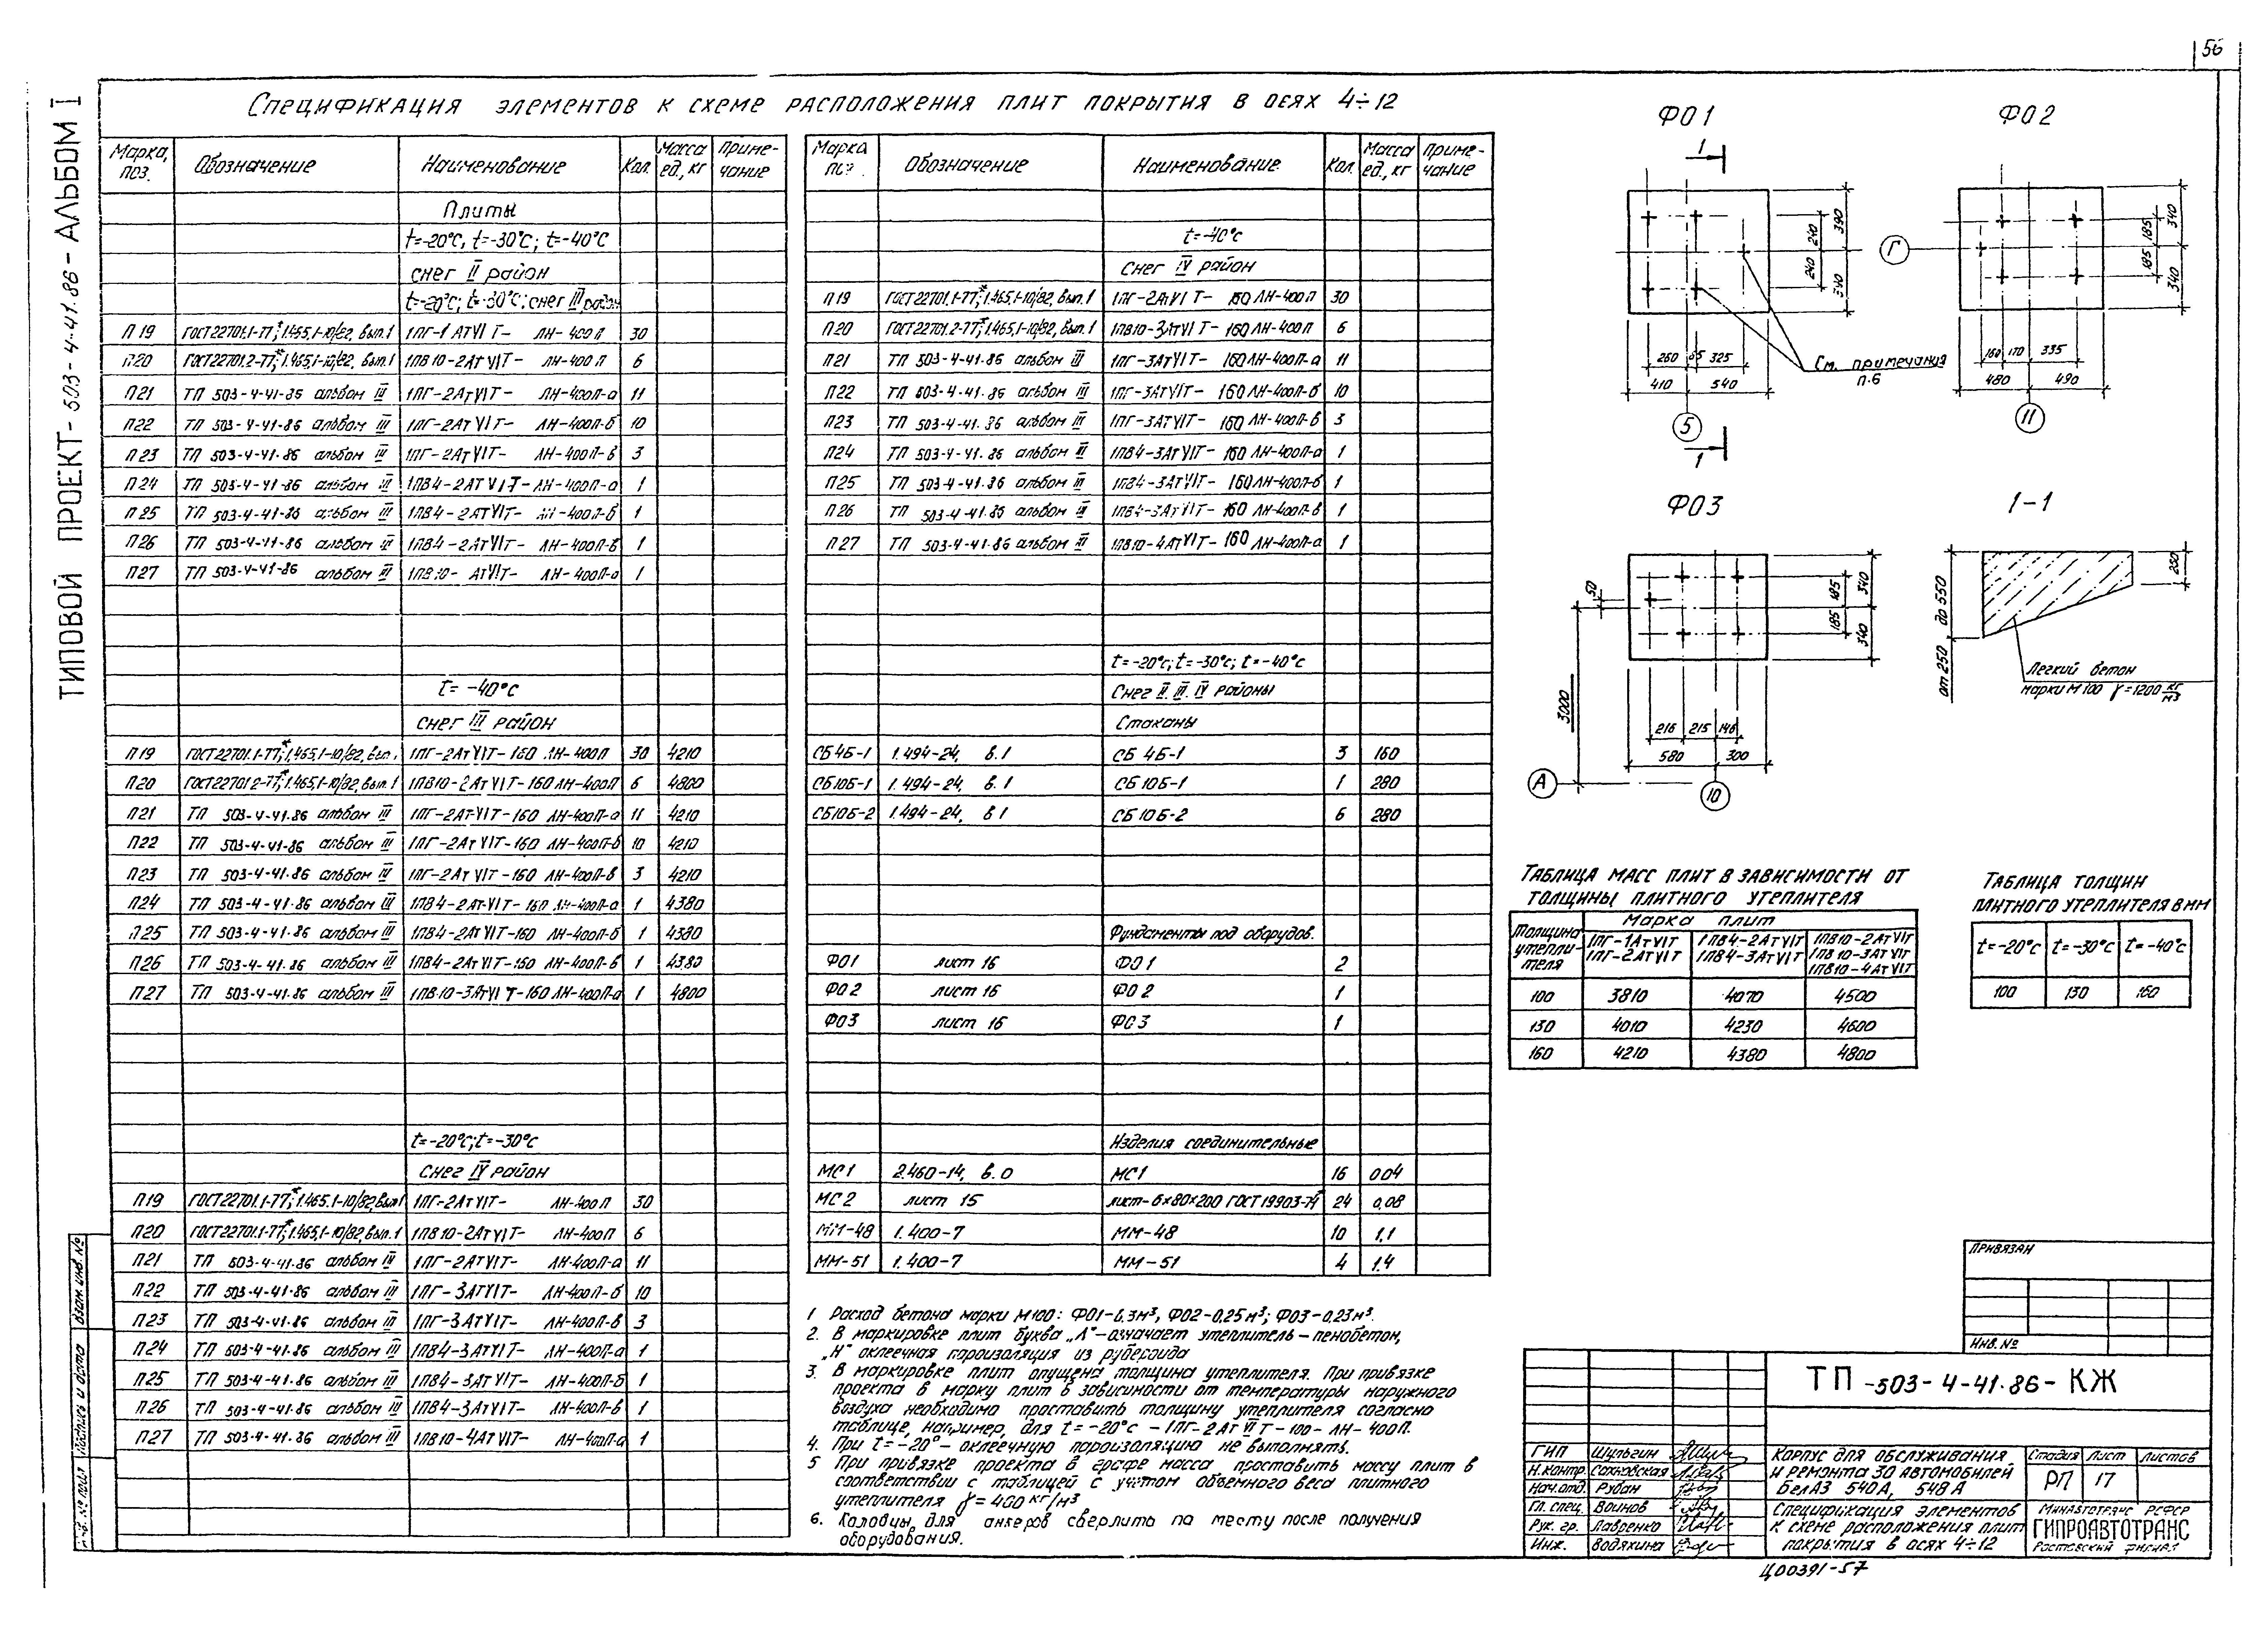 56
ТИПОВОЙ ПРОЕКТ-503-4-41.86-АЛЬБОМ I
Спецификация элементов к схеме расположения плит покрытия в осях 4÷12
Марка, поз. Обозначение Наименование Кол. Масса ед., кг Примечание
Плиты
t=-20°С, t=-30°С; t=-40°С
снег II район
t=-20°С; t=-30°С; снег III район
П19 ГОСТ22701.1-77*; 1.465.1-10/82, вып.1 1ПГ-1 АтVIТ- ЛН-400П 30
П20 ГОСТ22701.2-77*; 1.465.1-10/82, вып.1 1ПВ10-2АтVIТ- ЛН-400П 6
П21 ТП 503-4-41-86 альбом III 1ПГ-2АтVIТ- ЛН-400П-а 11
П22 ТП 503-4-41-86 альбом III 1ПГ-2АтVIТ- ЛН-400П-б 10
П23 ТП 503-4-41.86 альбом III 1ПГ-2АтVIТ- ЛН-400П-в 3
П24 ТП 503-4-41-86 альбом III 1ПВ4-2АтVIТ-ЛН-400П-а 1
П25 ТП 503-4-41-86 альбом III 1ПВ4-2АтVIТ- ЛН-400П-б 1
П26 ТП 503-4-41-86 альбом III 1ПВ4-2АтVIТ- ЛН-400П-в 1
П27 ТП 503-4-41-86 альбом III 1ПВ10- АтVIТ- ЛН-400П-а 1
t= -40°С
снег III район
П19 ГОСТ22701.1-77*; 1.465.1-10/82, вып.1 1ПГ-2АтVIТ-160 ЛН-400П 30 4210
П20 ГОСТ22701.2-77*; 1.465.1-10/82, вып.1 1ПВ10-2АтVIТ-160 ЛН-400П 6 4800
П21 ТП 503-4-41.86 альбом III 1ПГ-2АтVIТ-160 ЛН-400П-а 11 4210
П22 ТП 503-4-41-86 альбом III 1ПГ-2АтVIТ-160 ЛН-400П-б 10 4210
П23 ТП 503-4-41.86 альбом III 1ПГ-2АтVIТ-160 ЛН-400П-в 3 4210
П24 ТП 503-4-41.86 альбом III 1ПВ4-2АтVIТ-160 ЛН-400П-а 1 4380
П25 ТП 503-4-41.86 альбом III 1ПВ4-2АтVIТ-160 ЛН-400П-б 1 4380
П26 ТП 503-4-41.86 альбом III 1ПВ4-2АтVIТ-160 ЛН-400П-в 1 4380
П27 ТП 503-4-41.86 альбом III 1ПВ10-3АтVIТ-160 ЛН-400П-а 1 4800
t=-20°С; t=-30°С
Снег IV район
П19 ГОСТ22701.1-77*; 1.465.1-10/82, вып.1 1ПГ-2АтVIТ- ЛН-400П 30
П20 ГОСТ22701.1-77*; 1.465.1-10/82, вып.1 1ПВ10-2АтVIТ- ЛН-400П 6
П21 ТП 503-4-41.86 альбом III 1ПГ-2АтVIТ- ЛН-400П-а 11
П22 ТП 503-4-41-86 альбом III 1ПГ-3АтVIТ- ЛН-400П-б 10
П23 ТП 503-4-41.86 альбом III 1ПГ-3АтVIТ- ЛН-400П-в 3
П24 ТП 503-4-41.86 альбом III 1ПВ4-3АтVIТ- ЛН-400П-а 1
П25 ТП 503-4-41.86 альбом III 1ПВ4-3АтVIТ- ЛН-400П-б 1
П26 ТП 503-4-41.86 альбом III 1ПВ4-3АтVIТ- ЛН-400П-в 1
П27 ТП 503-4-41.86 альбом III 1ПВ10-4АтVIТ- ЛН-400П-а 1
Марка поз. Обозначение Наименование Кол. Масса ед., кг Примечание
t=-40°С
Снег IV район
П19 ГОСТ22701.1-77*; 1.465.1-10/82, вып.1 1ПГ-2АтVIТ- 160 ЛН-400П 30
П20 ГОСТ22701.2-77*; 1.465.1-10/82, вып.1 1ПВ10-3АтVIТ-160 ЛН-400П 6
П21 ТП 503-4-41.86 альбом III 1ПГ-3АтVIТ- 160 ЛН-400П-а 11
П22 ТП 503-4-41.86 альбом III 1ПГ-3АтVIТ- 160 ЛН-400П-б 10
П23 ТП 503-4-41.86 альбом III 1ПГ-3АтVIТ- 160 ЛН-400П-в 3
П24 ТП 503-4-41.86 альбом III 1ПВ4-3АтVIТ- 160 ЛН-400П-а 1
П25 ТП 503-4-41.86 альбом III 1ПВ4-3АтVIТ- 160 ЛН-400П-б 1
П26 ТП 503-4-41.86 альбом III 1ПВ4-3АтVIТ- 160 ЛН-400П-в 1
П27 ТП 503-4-41.86 альбом III 1ПВ10-4АтVIТ- 160 ЛН-400П-а 1
t=-20°С; t=-30°С; t=-40°С
Снег II. III. IV районы
Стаканы
СБ4Б-1 1.494-24, в.1 СБ 4Б-1 3 160
СБ10Б-1 1.494-24, в.1 СБ 10Б-1 1 280
СБ10Б-2 1.494-24, в 1 СБ 10Б-2 6 280
Фундаменты под оборудов.
ФО1 лист 16 ФО1 2
ФО2 лист 16 ФО2 1
ФО3 лист 16 ФО3 1
Изделия соединительные
МС1 2.460-14, в.0 МС1 16 0.04
МС2 лист 15 лист-6×80×200 ГОСТ19903-74* 24 0,08
ММ-48 1.400-7 ММ-48 10 1,1
ММ-51 1.400-7 ММ-51 4 1.4
1 Расход бетона марки М100: ФО1- м³, ФО2-0,25м³; ФО3-0,23м³.
2. В маркировке плит буква „Л"-означает утеплитель-пенобетон,
„Н" оклеечная пароизоляция из рубероида
3. В маркировке плит опущена толщина утеплителя. При привязке
проекта в марку плит в зависимости от температуры наружного
воздуха необходимо проставить толщину утеплителя согласно
таблице, например, для t=-20°С -1ПГ-2АтVIТ-100-ЛН-400П.
4. При t=-20°- оклеечную пароизоляцию не выполнять.
5 При привязке проекта в графе масса проставить массу плит в
соответствии с таблицей с учетом объемного веса плитного
утеплителя γ=400 кг/м³
6. Колодцы для анкеров сверлить по месту после получения
оборудования.
ФО1
1
240 390
240 340
260 85 325
410 540
5
1
См. примечания
п.6
ФО2
Г
185 340
185 340
160 170 335
480 490
11
ФО3
50
185 340
185 340
3000
216 215 146
580 300
А
10
1-1
250
от 250 до 550
Легкий бетон
марки М100 γ=1200 кг/м3
Таблица масс плит в зависимости от
толщины плитного утеплителя
Толщина утеплителя Марка плит
1ПГ-1АтVIТ 1ПВ4-2АтVIТ 1ПВ10-2АтVIТ
1ПГ-2АтVIТ 1ПВ4-3АтVIТ 1ПВ10-3АтVIТ
1ПВ10-4АтVIТ
100 3810 4070 4500
130 4010 4230 4600
160 4210 4380 4800
Таблица толщин
плитного утеплителя в мм
t=-20°С t=-30°С t=-40°С
100 130 160
Привязан
Инв.№
ТП-503-4-41.86-КЖ
ГИП Шульгин
Н.контр. Сохновская
Нач.отд. Рубан
Гл.спец. Воинов
Рук. гр. Лавренко
Инж. Водяхина
Корпус для обслуживания
и ремонта 30 автомобилей
БелАЗ 540А, 548А
Стадия Лист Листов
РП 17
Спецификация элементов
к схеме расположения плит
покрытия в осях 4÷12
Минавтотранс РСФСР
ГИПРОАВТОТРАНС
Ростовский филиал
Ц00391-57
Взам. инв. №
Подпись и дата
Инв. № подл